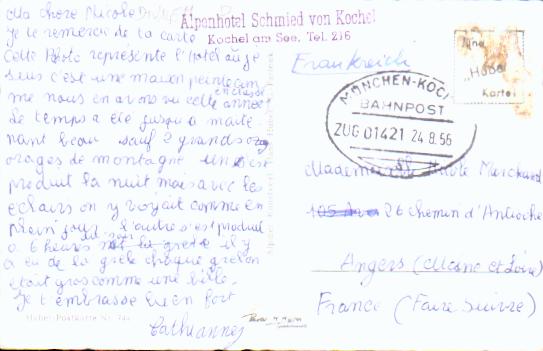 Ma chère Nicole
Je te remercie de ta carte
Cette Photo représente l'Hotel où je
suis c'est une maison peinte com
me nous en avons vu cette année
en classe
Le temps a été jusqu'à mainte
nant beau sauf 2 grands
orages de montagne un s'est
produit la nuit mais avec les
éclairs on y voyait comme en
plein jour. l'autre s'est produit
à 6 heures du soir il y
a eu de la grêle chaque grêlon
était gros comme une bille.
Je t'embrasse bien fort
Cathannes
Huber-Postkarte Nr. 744
Alpenhotel Schmied von Kochel
Kochel am See. Tel. 216
Frankreich
Eine
"Huber"
Karte
MÜNCHEN-KOCH
BAHNPOST
ZUG 01421 24.8.56
Mademoiselle Nicole Marchand
26 chemin d'Antioche
Angers (Maine et Loire)
France (Faire Suivre)